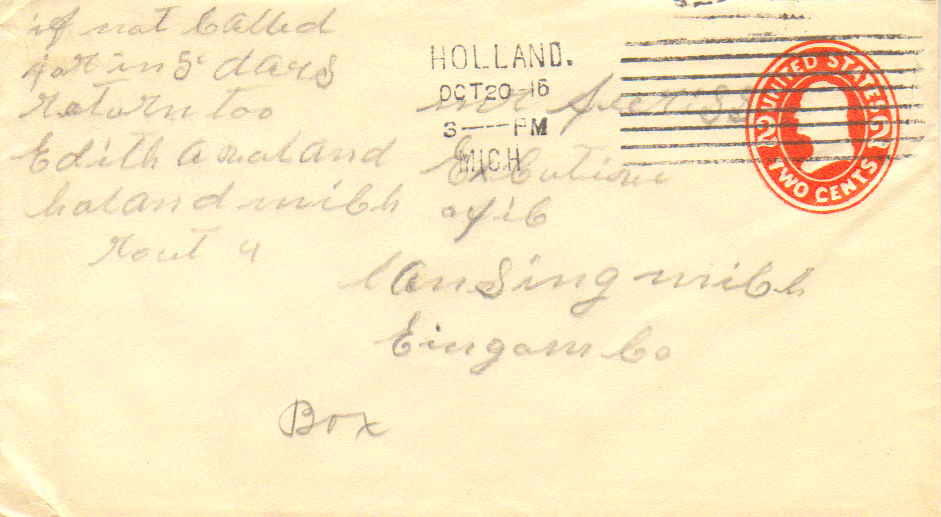 if not Called
for in 5 days
return too
Edith A roaland
holand mich
rout 4
HOLLAND.
OCT 20 16
3 -- PM
MICH
UNITED STATES
2 2
TWO CENTS
mr
Excutive
ofic
lansing mich
Eingam Co
Box